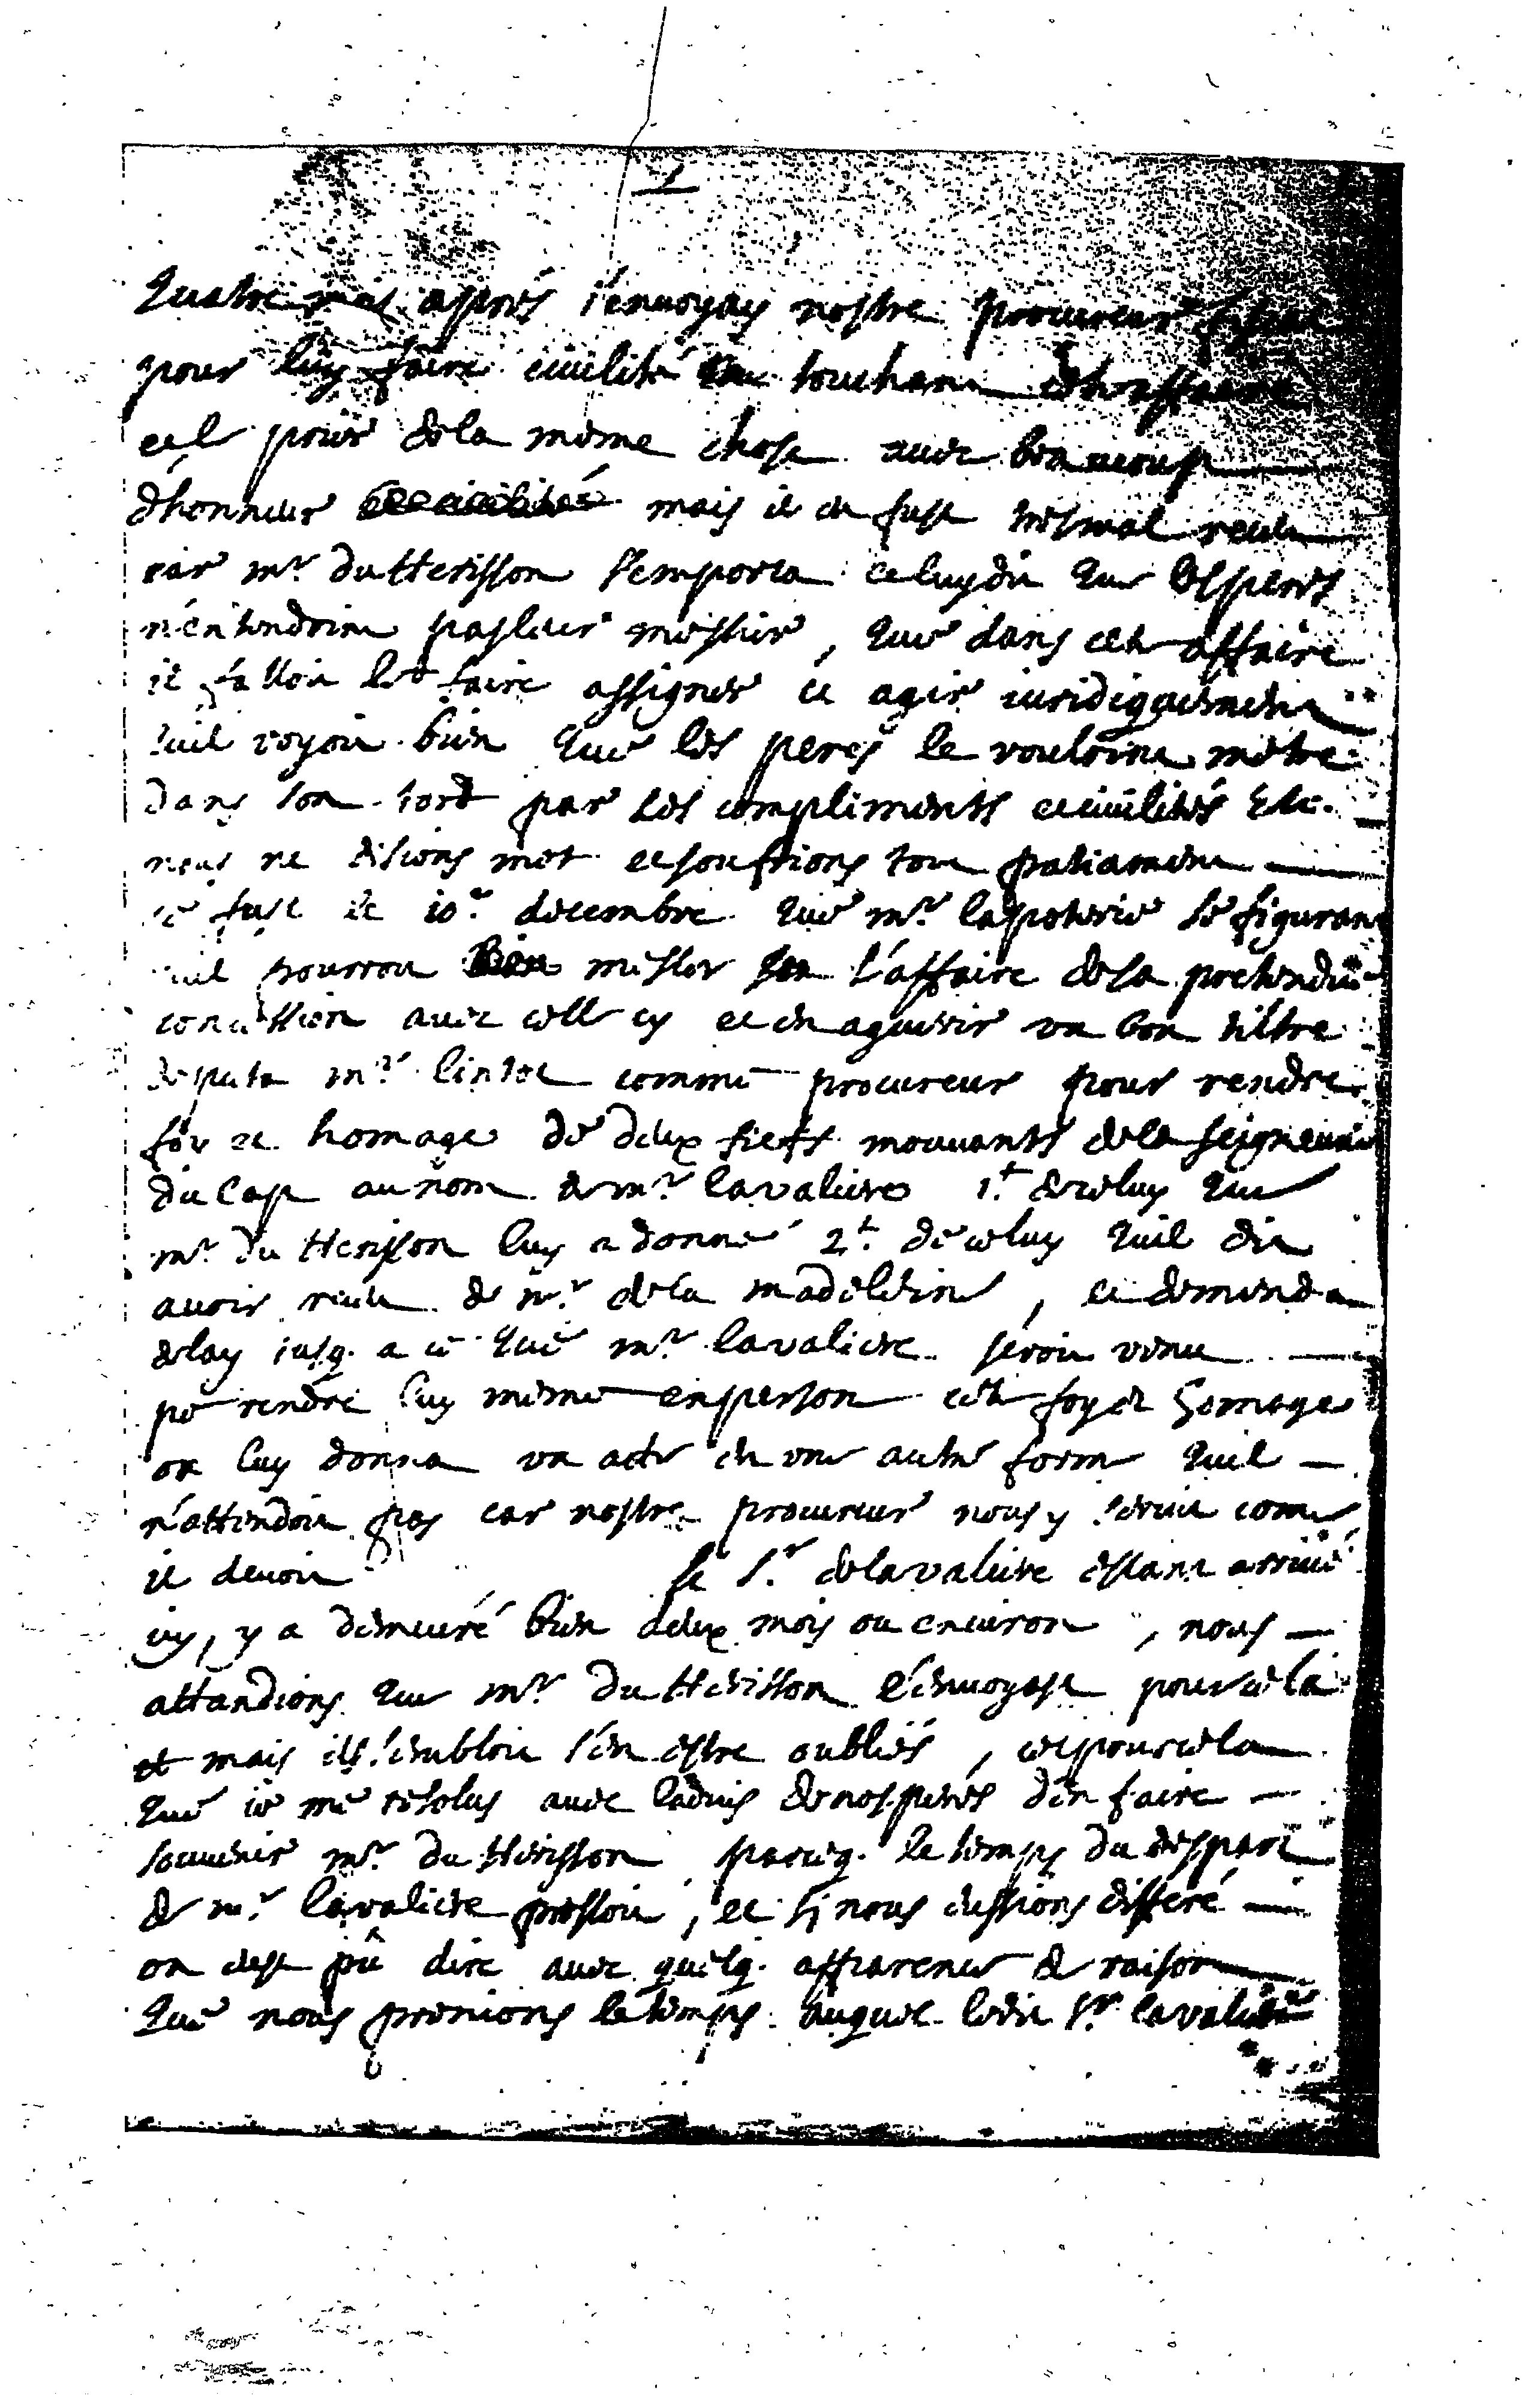 quatre mois aprés i'enuoyay nostre procureur fiscal
pour luy faire ciuilité touchant
et pour de la même chose auec beaucoup
d'honneur mais il en fust tres mal receu
car mr. du Herisson s'emporta et luy dit que les peres
n'entendoint pas leur mestier, que dans cet affaire
il falloit le faire assigner et agir iuridiquement
quil voyoit bien que les peres le vouloint mettre
dans son tord par les compliments et ciuilités etc.
nous ne disions mot et souffrions tout patiament
ce fust le 10e. decembre que mr. lapoterie se figurant
quil pourroit mesler l'affaire de sa pretendue
concession auec celle cy et en aquerir un bon tiltre
deputa mr. lintot comme procureur pour rendre
foy et homage de deux fiefs mouuants de la seigneurie
du Cap au nom de mr. lavaliere 1t. de celuy que
mr. du Herisson luy a donné 2t. de celuy quil dit
auoir receu de mr. de la madeleine, et demanda
delay iusq. a ce que mr. lavaliere seroit venu
pr rendre luy même en person cet foy et homage
on luy donna un acte en une autre form quil
n'attendoit pas car nostre procureur nous y seruit come
il deuoit le Sr. de lavaliere estant arriué
icy, y a demeuré bien deux mois ou enuiron, nous
attandions que mr. du Herisson l'enuoyast pour cela
et mais ils sembloit s'en estre oubliés, cest pour cela
que ie me resolus auec laduis de nos peres d'en faire
souuenir mr. du Herisson parceq. le temps du despart
de mr. lavaliere pressoit, et si nous eussions differé
on eust pû dire auec quelq. apparence de raison
que nous prenions le temps auquel ledit Sr. lavaliere